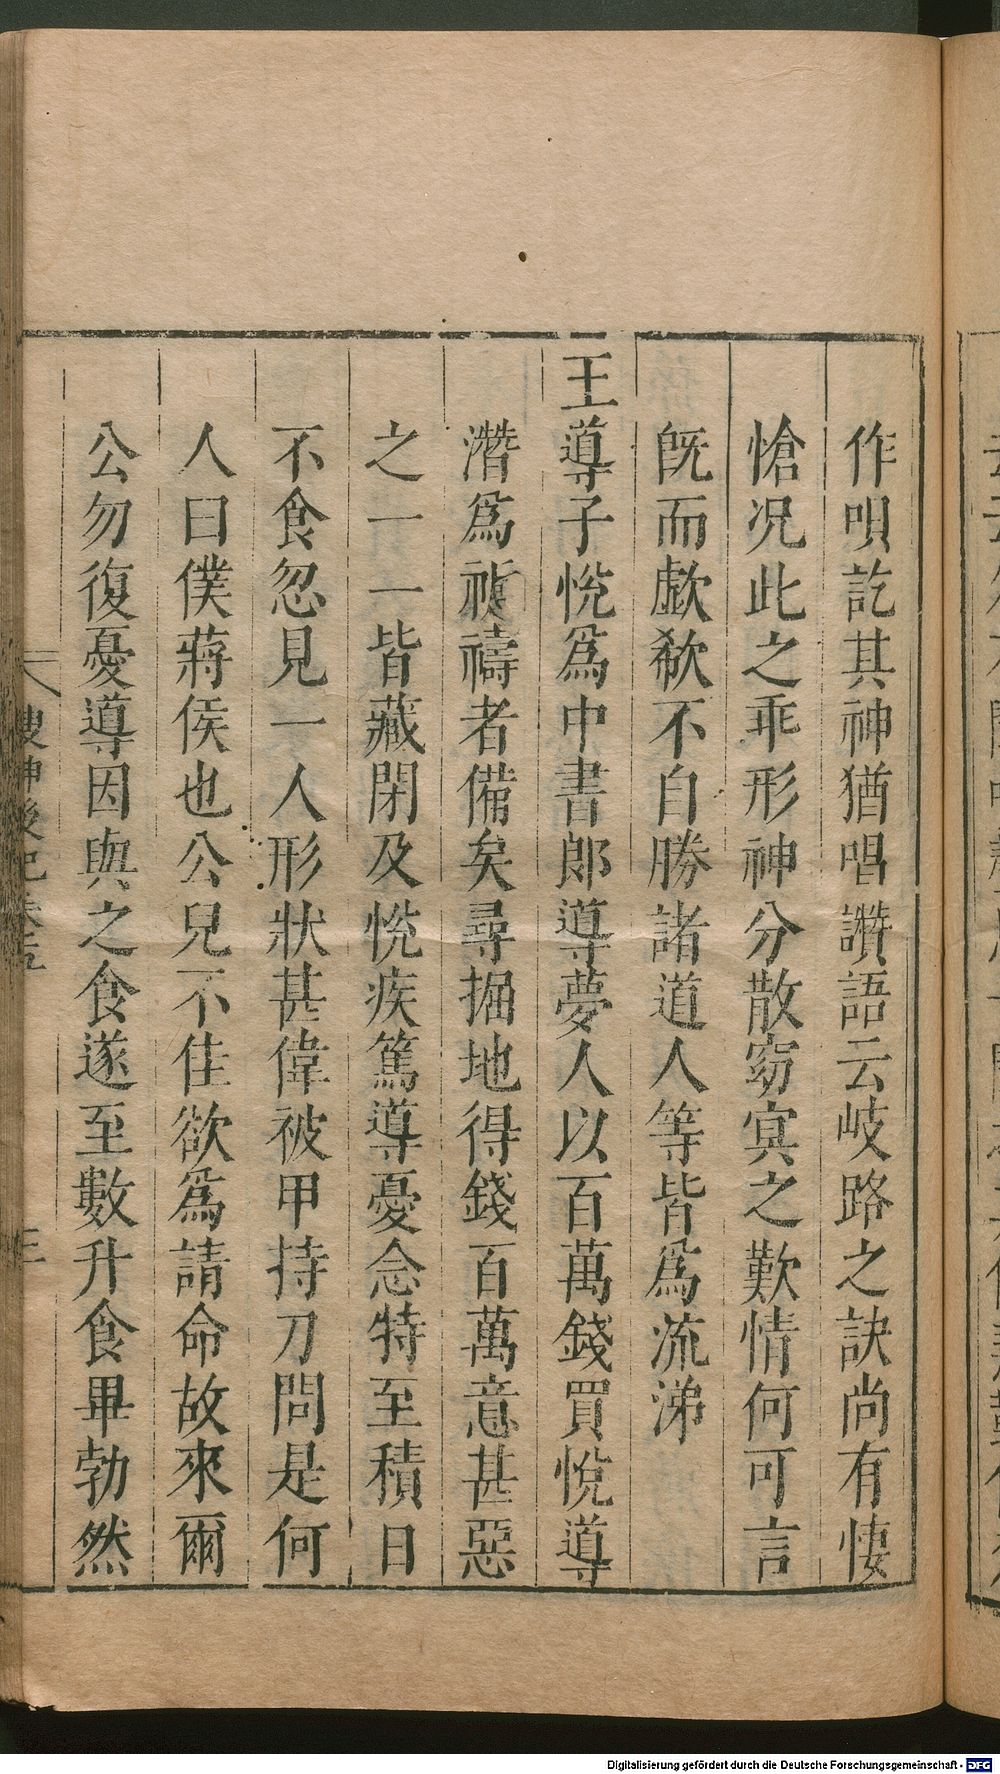 作唄訖其神猶唱讚語云岐路之訣尚有悽
愴况此之乖形神分散窈㝠之歎情何可言
旣而歔欷不自勝諸道人等皆爲流涕
王導子悅爲中書郎導夢人以百萬錢買悅導
潛爲祈禱者備矣尋掘地得錢百萬意甚惡
之一一皆藏閉及悅疾篤導憂念特至積日
不食忽見一人形狀甚偉被甲持刀問是何
人曰僕蔣侯也公兒不佳欲爲請命故來爾
公勿復憂導因與之食遂至數升食畢勃然
搜神後記卷五
三
Digitalisierung gefördert durch die Deutsche Forschungsgemeinschaft - DFG